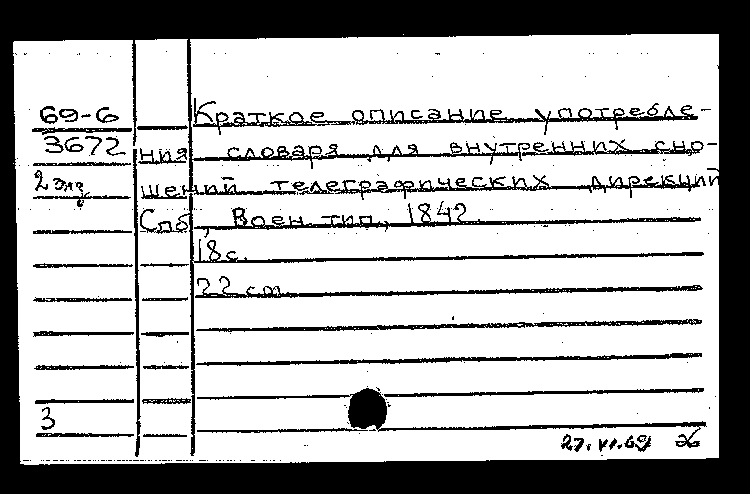 69-6 Краткое описание употребле-
3672 ния словаря для внутренних сно-
2 экз шений телеграфических дирекций
Спб, Воен. тип., 1842.
18 с.
22 см
3
27.VI.69